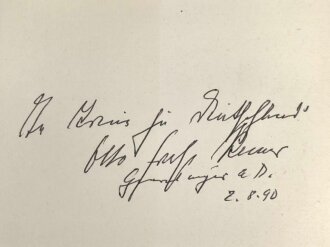 In Treue zu Deutschland
Otto Ernst Remer
Generalmajor a. D.
2. 8. 90